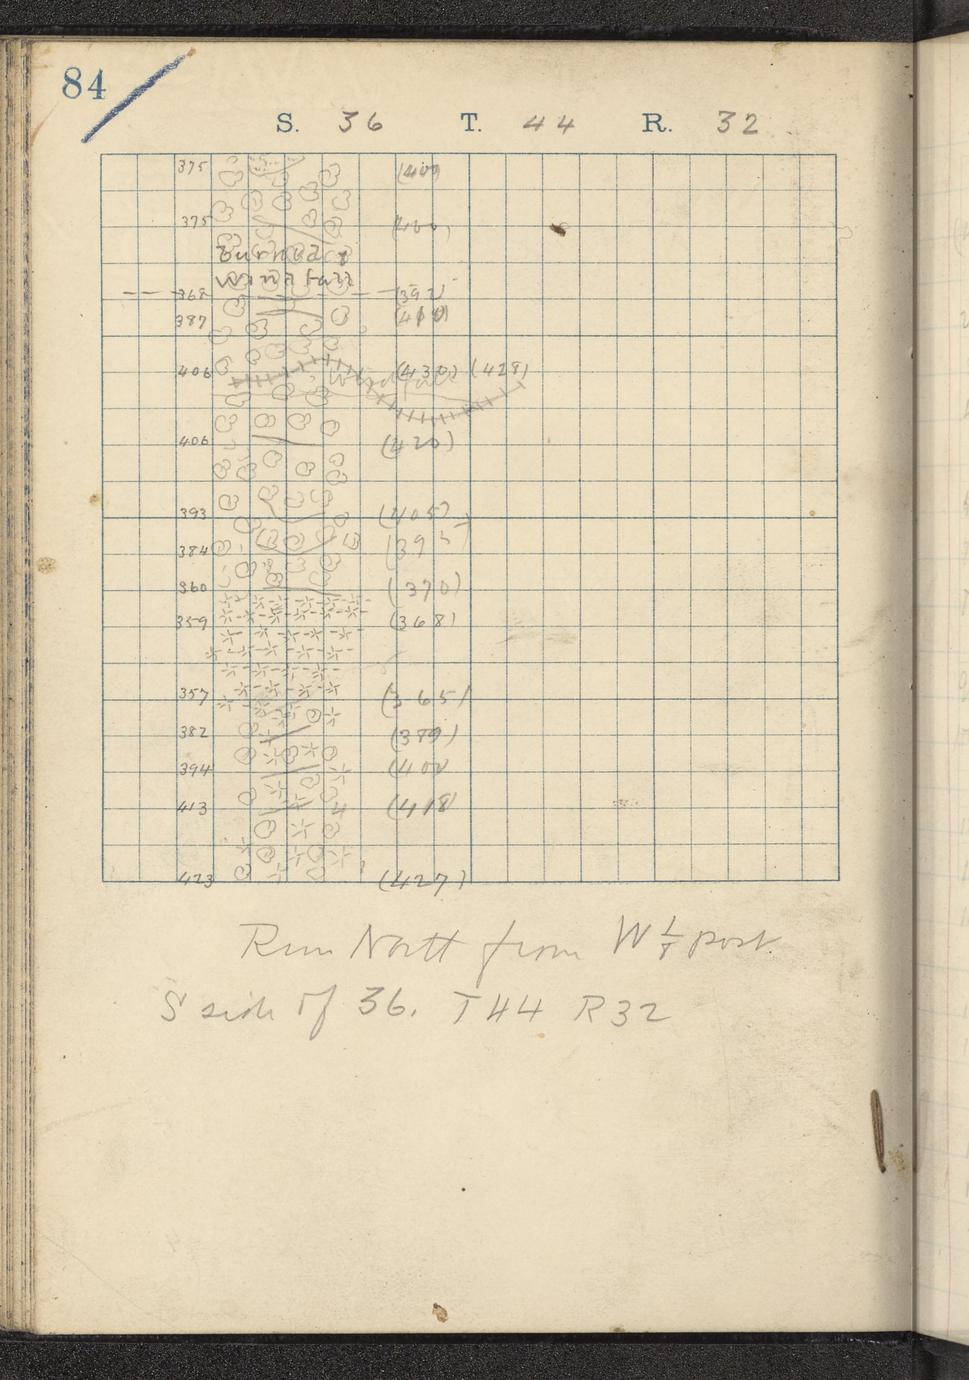 84
S. 36 T. 44 R. 32
375 (400)
375 (400)
Burned &
Windfall
368 (392)
387 (410)
406 Windfall (430) (428)
406 (420)
393 (405)
384 (395)
360 (370)
359 (368)
357 (365)
382 (389)
394 (400)
413 (418)
423 (427)
Run North from W 1/8 post
S side of 36. T44 R32